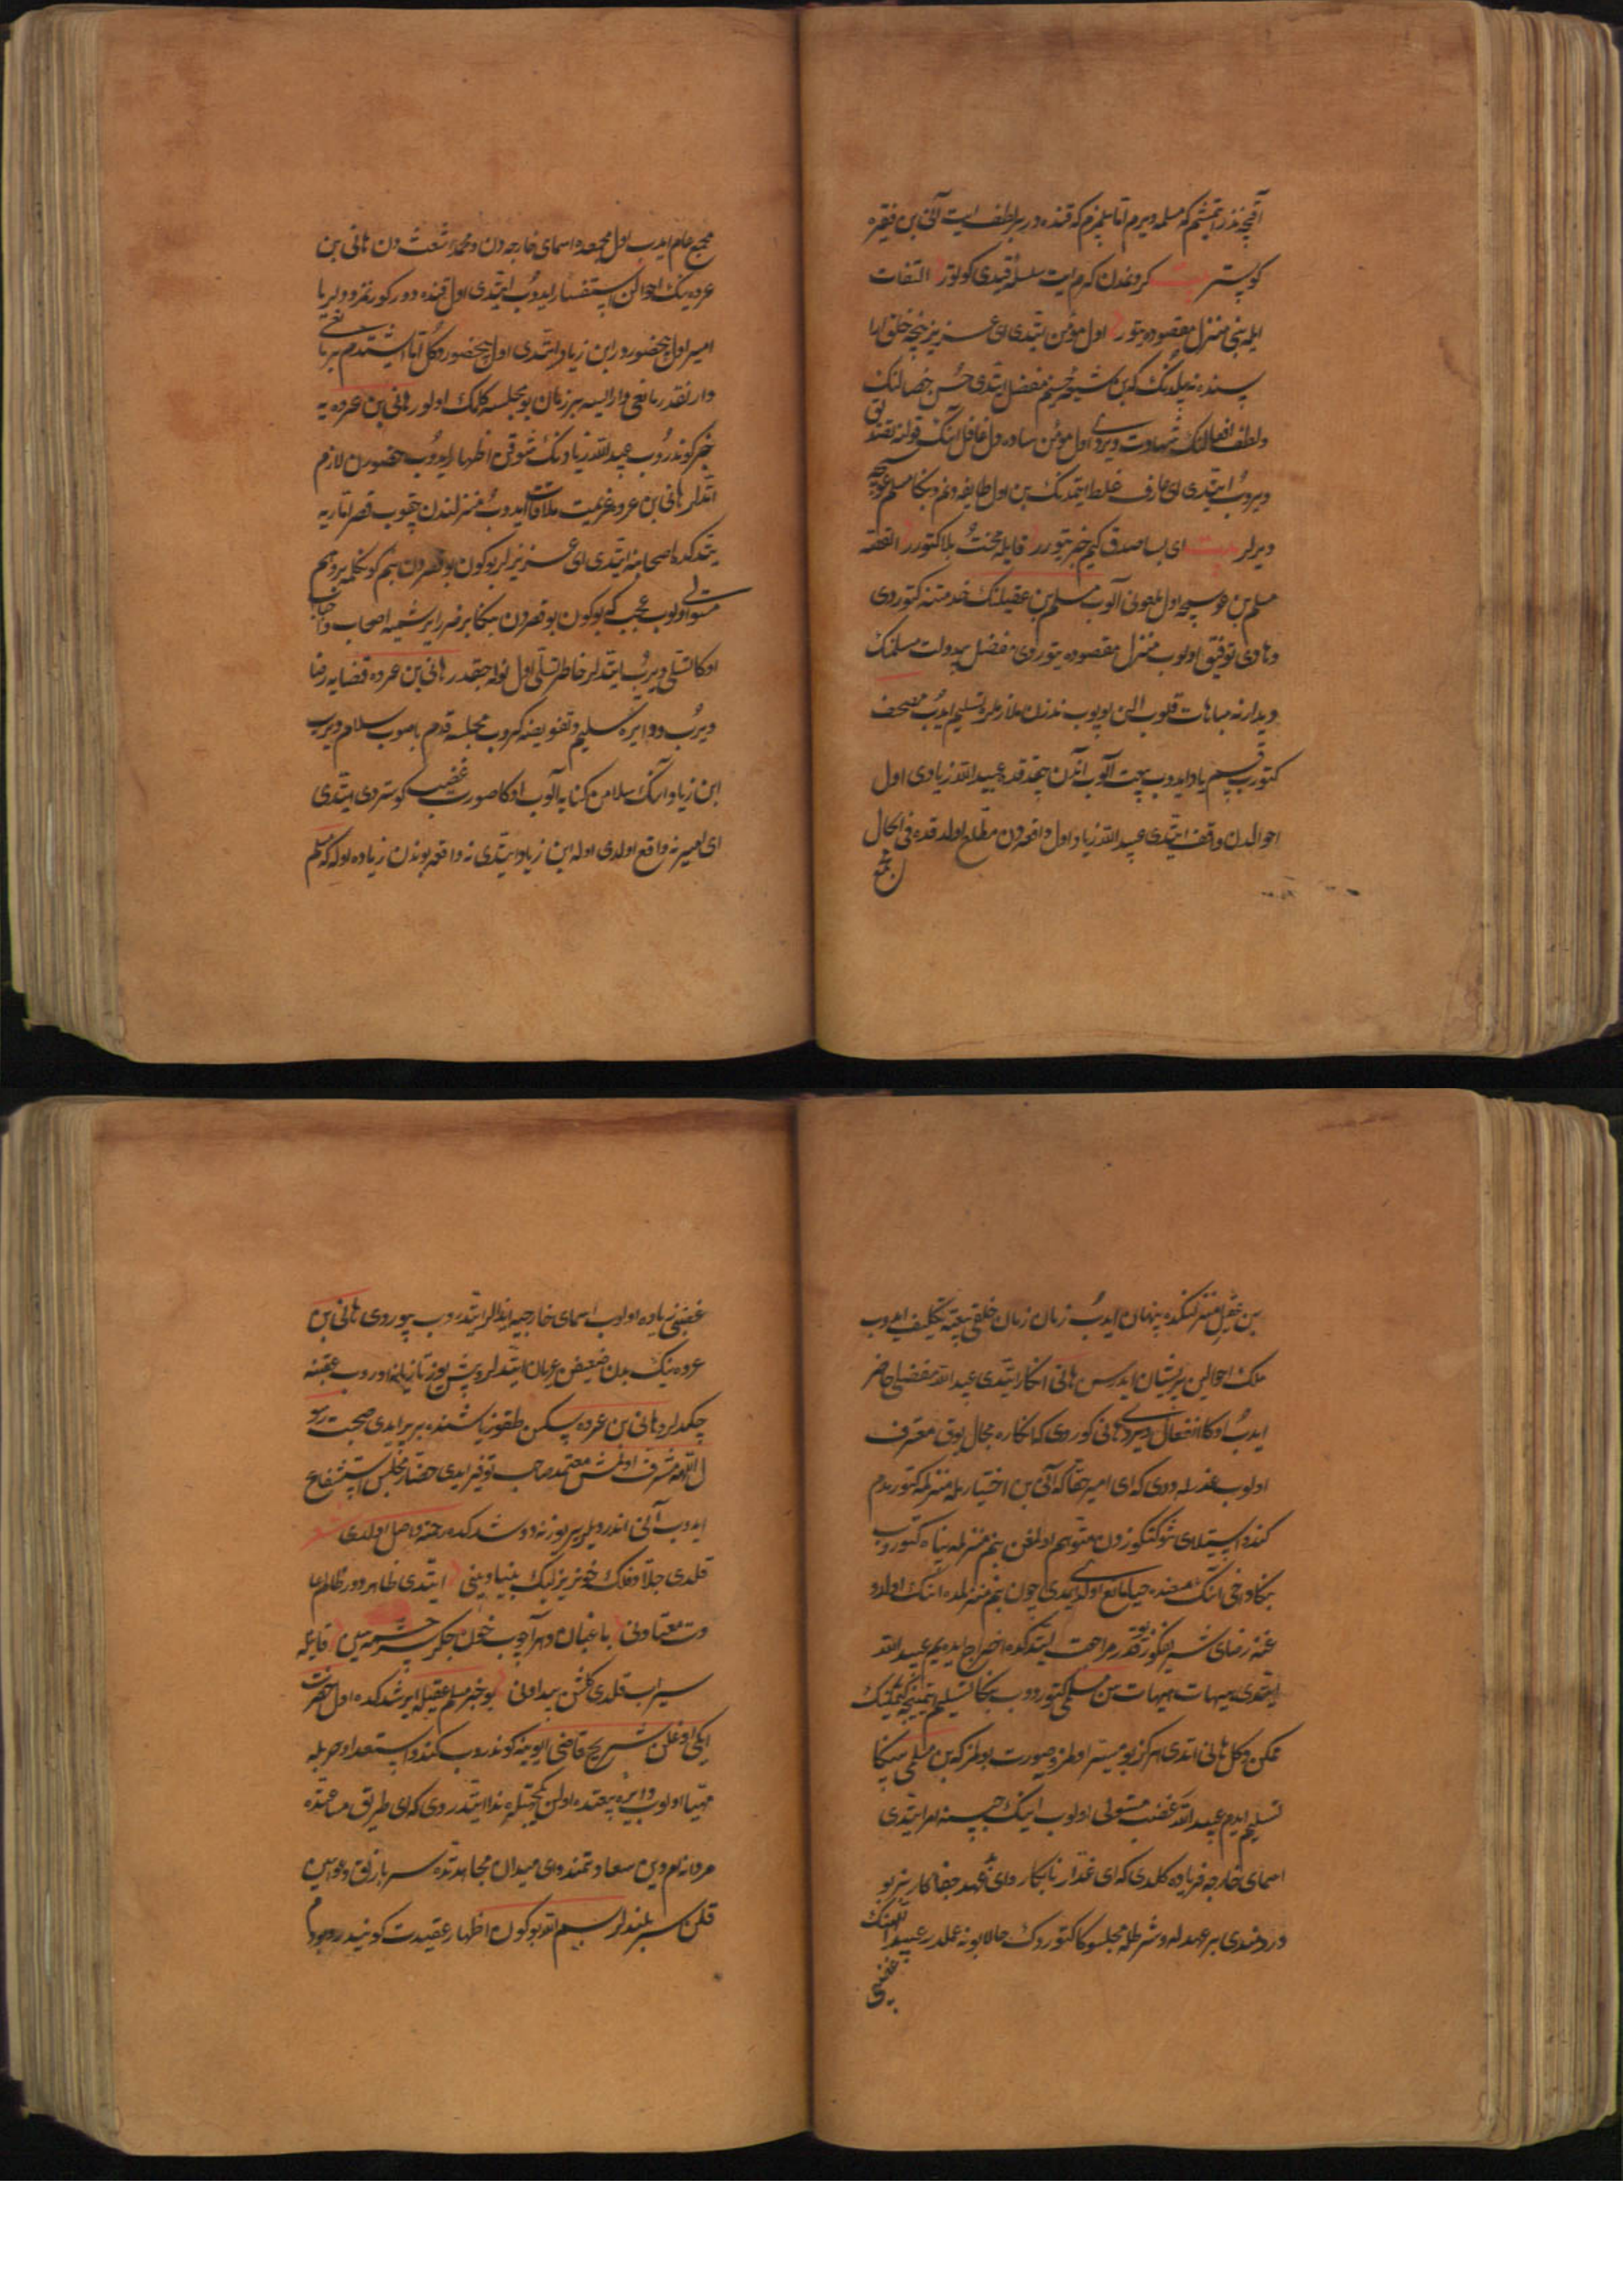 آقچه نذر ایتمشم که مسلمه ویرم اما بلمزم که قنده در بر لطف ایت آنی بن فقیره
کوستر بیت کروندن کرم ایت سلسله قیدی کوتور التفات
ایله بنی منزل مقصوده یتور اول مؤمن ایتدی ای عزیز نیچه خلق ارا
سنده نه بیلدنک که بن شیعه حسینم مفضل ایتدی حسن خصالنک
ولطف افعالنک شهادت ویردی اول مؤمن ساده دل غافل آنک قولنه تصدیق
ویروب ایتدی ای عارف غلط ایتمدنک بن اول طایفه دنم وبکا مسلم عوسجه
دیرلر بیت ای بسا صدق کیم خبر یتورر قایله محنت بلا کتورر القصه
مسلم بن عوسجه اول ملعونی آلوب مسلم بن عقیلنک خدمتنه کتوردی
وهادی توفیق اولوب منزل مقصوده یتوردی مفضل بیدولت مسلمنک
دیدارنه مباهات قلوب الین اوپوب نذرن ملازملره تسلیم ایدوب مصحف
کتورب قسم یاد ایدوب بیعت آلوب اندن چقدقده عبیدالله زیادی اول
احوالدن وقف ایتدی عبیدالله زیاد اول واقعه دن مطلع اولدقده فی الحال
مجمع عام ایدب اول مجمعده اسمای خارجه دن ومحمد اشعث دن هانی بن
عروه نیک احوالن استفسار ایدوب ایتدی اول قنده دور کورنمز دیدیلر یا
امیر اول بیحضور در ابن زیاد ایتدی اول بیحضور دکل اما ایشتدم بر مانعی
وار نقدر مانعی وار ایسه بر زمان بو مجلسه کلمک اولور هانی بن عروه یه
خبر کوندروب عبیدالله زیادنک شوقن اظهار ایدوب حضورن لازم
ایتدلر هانی بن عروه عزیمت ملاقات ایدوب منزلندن چقوب قصر اماریه
یتدکده اصحابنه ایتدی ای عزیزلر بوکون بو قصردن بنم کوکلمه بر وهم
مستولی اولوب عجب که بوکون بو قصردن بکا بر ضرر ایرشمیه اصحاب واحباب
اوکا تسلی ویرب ایتدلر خاطر تسلی اول نوله جقدر هانی بن عروه قضایه رضا
ویرب ودایره تسلیم وتفویضه کروب مجلسه قدم باصوب سلام ویرب
ابن زیاد انک سلامن کنایه آلوب اوکا صورت غضب کوستردی ایتدی
ای امیر نه واقع اولدی اوله ابن زیاد ایتدی نه واقعه بوندن زیاده اوله که مسلم
بن عقیل منزلنکده پنهان ایدب زمان زمان خلقی بیعته تکلیف ایدوب
ملک احوالین پریشان ایدرسن هانی انکار ایتدی عبیدالله مفضلی حاضر
ایدب اوکا انفعال ویردی هانی کوردی که انکاره مجال یوق معترف
اولوب عذرله دیدی که ای امیر حقا که آنی بن اختیارمله منزلمه کتورمدم
کندو استیلای شوکتکوزدن متوهم اولمغن بنم منزلمه پناه کتوروب
بکا دخی انک منعنده حیا مانع اولدی ایمدی چون بنم منزلمده انک اولدوغنه
رضای شریفکوز یوقدر مراجعت ایتدکده اخراج ایدیم عبیدالله
ایتدی هیهات هیهات سن مسلمی کتوردوب بکا تسلیم ایتمینجه کتمکنک
ممکن دکل هانی ایتدی هرکز بو میسر اولمز وصورت بولمز که بن مسلمی سکا
تسلیم ایدم عبیدالله غضب مستولی اولوب انک حبسنه امر ایتدی
اسمای خارجه فریاده کلدی که ای غدار نابکار وای بدعهد جفاکار بز بو
دردمندی بر عهدله وشرطله مجلسوکا کتوردک حالا بو نه عملدر عبیداللهنک
غضبی
غضبی زیاده اولوب اسمای خارجیه ایذالر ایتدروب بیوردی هانی بن
عروه نیک بدن ضعیفن عریان ایتدلر وبش یوز تازیانه اوروب عقبنه
چکدلر وهانی بن عروه سکسن طقوز یاشنده بر پیر ایدی صحبت رسو
ل اللهه مشرف اولمش معتمد صاحب توقیر ایدی حضار مجلس استشفاع
ایدوب آنی اندردیلر بر یوزنه دوشدکده رحمته واصل اولدی شعر
قلدی جلاد فلک خونریزلیک بنیادینی ایتدی ظاهر دور ظالم عا
دت معتادنی باغبان دهر آچوب خون جکر سرچشمه سین قایله
سیراب قلدی کلشن بیدادنی بو خبر مسلم عقیله ایرشدکده اول حضرت
ایکی اوغلن شریح قاضی ایوینه کوندروب کندو استعداد حربله
مهیا اولوب دایره بیعتده اولن یکیجهتلره ندا ایتدردی که ای طریق متابعتده
مردانه لر وین سعادتمند وای میدان مجاهدتده سربازلق دعواسین
قلن سربلندلر بسم الله بوکون اظهار عقیدت کونیدر